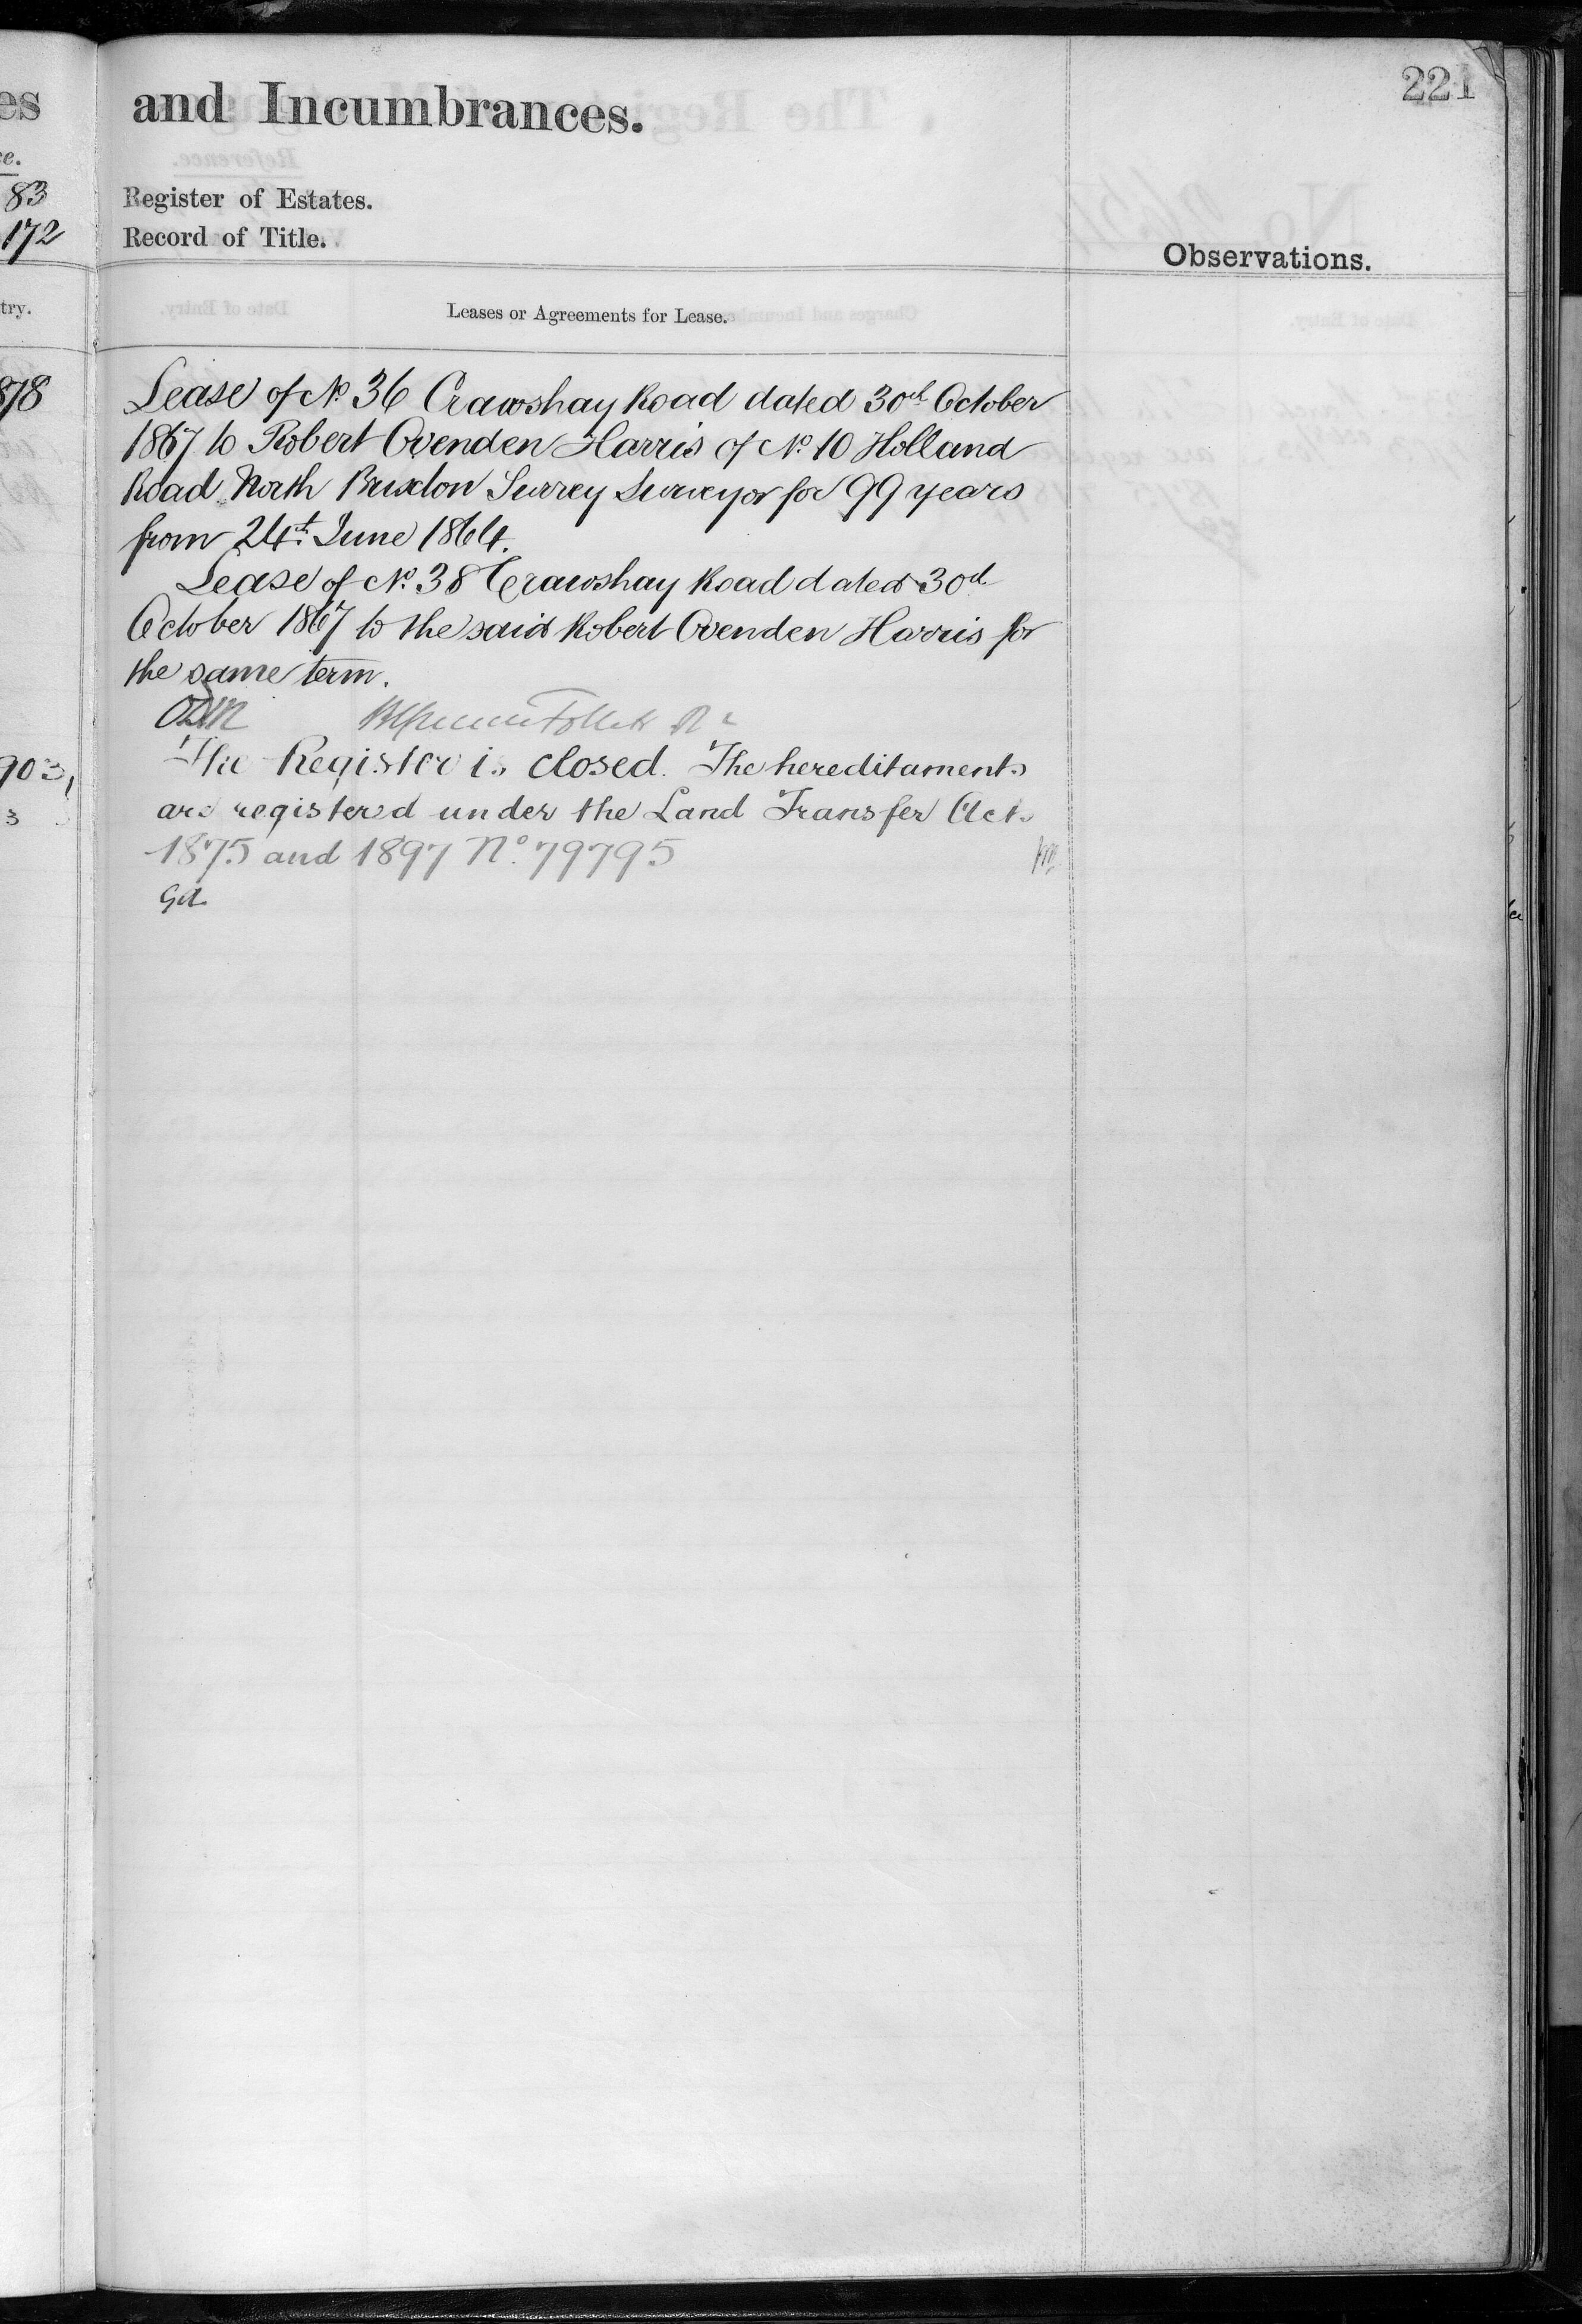 221
es
and Incumbrances.
83
Register of Estates.
172
Record of Title.
Observations.
try.
Leases or Agreements for Lease.
878
Lease of No. 36 Crawshay Road dated 30th October
1867 to Robert Ovenden Harris of No. 10 Holland
Road North Brixton Surrey Surveyor for 99 years
from 24th June 1864.
Lease of No. 38 Crawshay Road dated 30th
October 1867 to the said Robert Ovenden Harris for
the same term.
903
3
The Register is closed. The hereditaments
are registered under the Land Transfer Acts
1875 and 1897 No. 79795